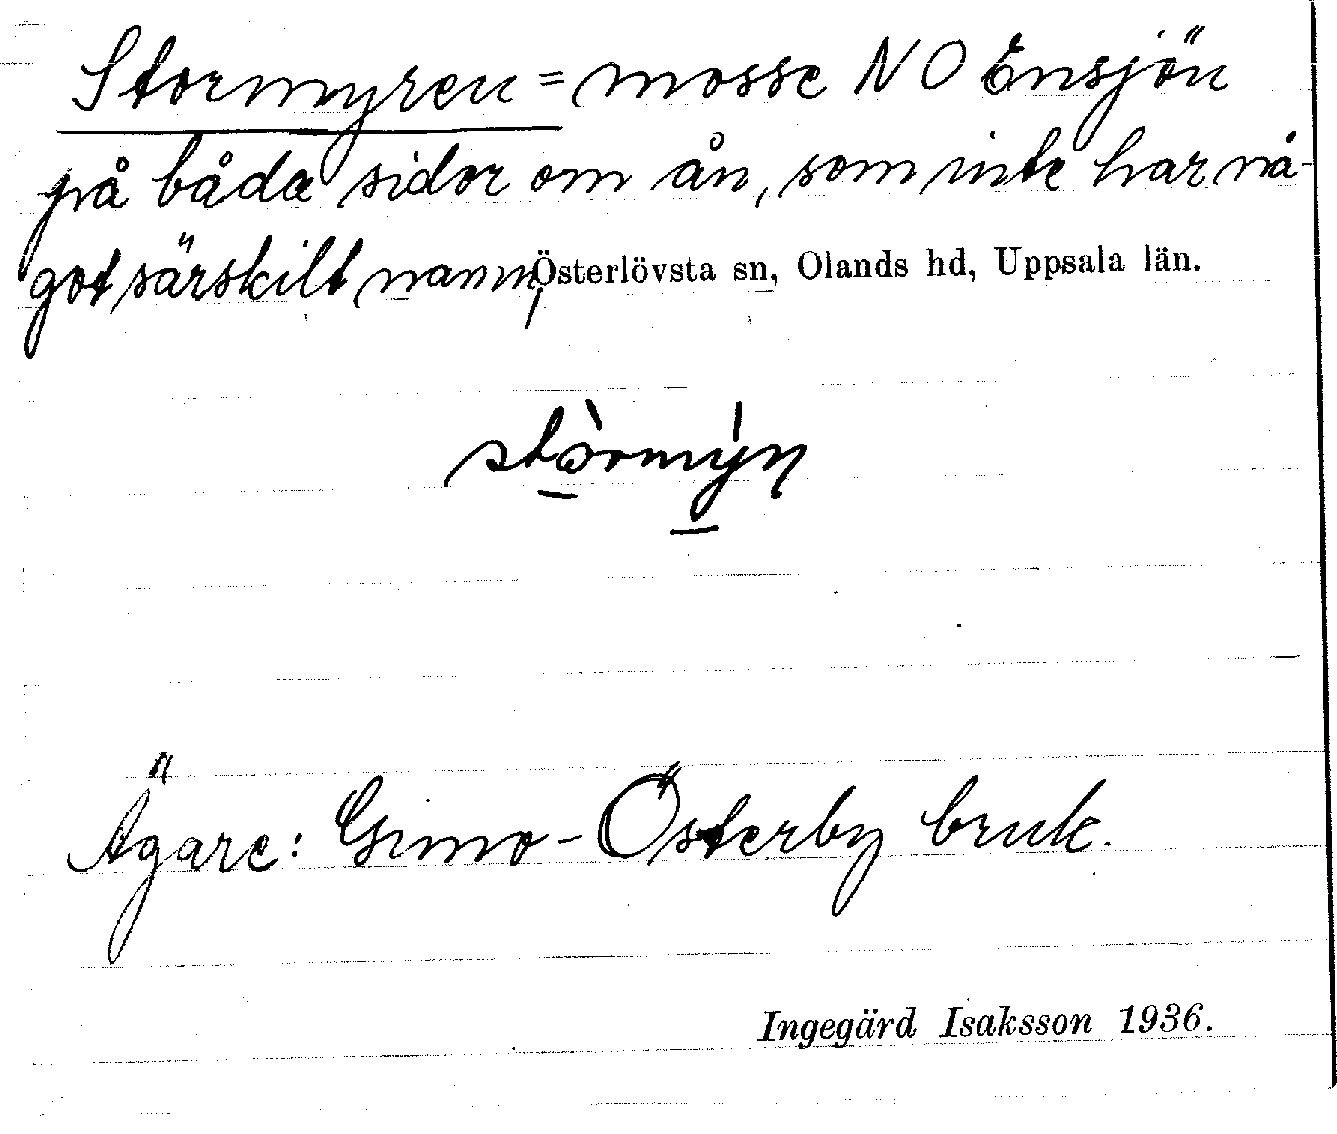 Stormyren = mosse NO Ensjön
på båda sidor om ån, som inte har nå-
got särskilt namn, Österlövsta sn, Olands hd, Uppsala län.
Ägare: Gimo-Österby bruk.
Ingegärd Isaksson 1936.